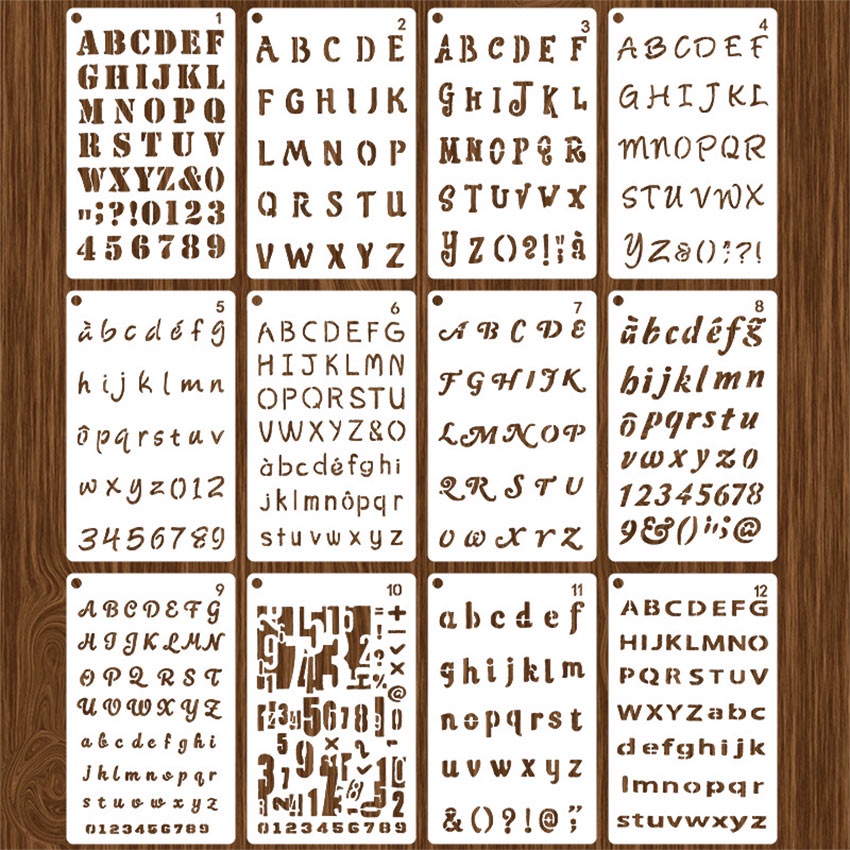 1
ABCDEF
GHIJKL
MNOPQ
RSTUV
WXYZ&()
";?!0123
456789
2
ABCDE
FGHIJK
LMNOP
QRSTU
VWXYZ
3
ABCDEF
GHIJKL
MNOPQR
STUVWX
YZ()?!";à
4
ABCDEF
GHIJKL
MNOPQR
STUVWX
YZ&();?!
5
àbcdéfg
hijklmn
ôpqrstuv
wxyz012
3456789
6
ABCDEFG
HIJKLMN
OPQRSTU
VWXYZ&O
àbcdéfghi
jklmnôpqr
stuvwxyz
7
ABCDE
FGHIJK
LMNOP
QRSTU
VWXYZ
8
àbcdéfg̃
hijklmn
ôpqrstu
vwxyz0
12345678
9&()";@
9
ABCDEFG
HIJKLMN
OPQRST
UVWXYZ
abcdefghi
jklmnopqr
stuvwxyz
0123456789
10
12345678910
0123456789
11
abcdef
ghijklm
nopqrst
uvwxyz
&()?!@;
12
ABCDEFG
HIJKLMNO
PQRSTUV
WXYZabc
defghijk
lmnopqr
stuvwxyz